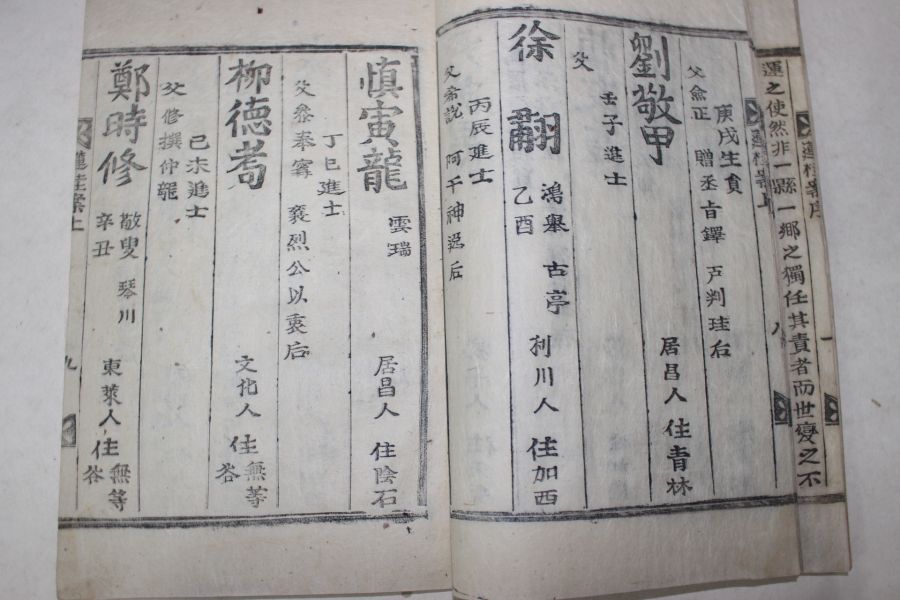 運之使然非一縣一鄉之獨任其責者而世變之不
蓮桂案序
一
蓮桂案上
八
庚戌生員
父僉正 贈丞旨鐸 戶判珪后
劉敬甲
居昌人 住青林
壬子進士
父
徐翻
鴻舉 古亭
乙酉
利川人 住加西
丙辰進士
阿干神逸后
愼寅龍
雲瑞
居昌人 住陰石
丁巳進士
父參奉寗 襄烈公以衷后
柳德蒿
文化人 住無等谷
己未進士
父修撰仲
鄭時修
敬叟 琴川
辛丑
東萊人 住無等谷
蓮桂案上
九